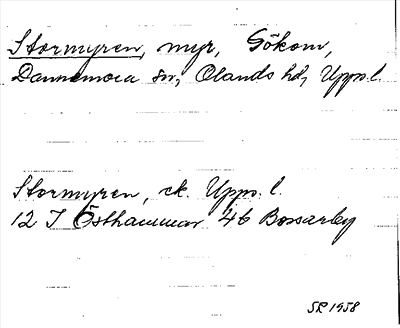 Stormyren, myr, Gökom,
Dannemora sn, Olands hd, Upps. l.
Stormyren, ek. Upps. l.
12 I Östhammar 46 Bossarby
SR 1958